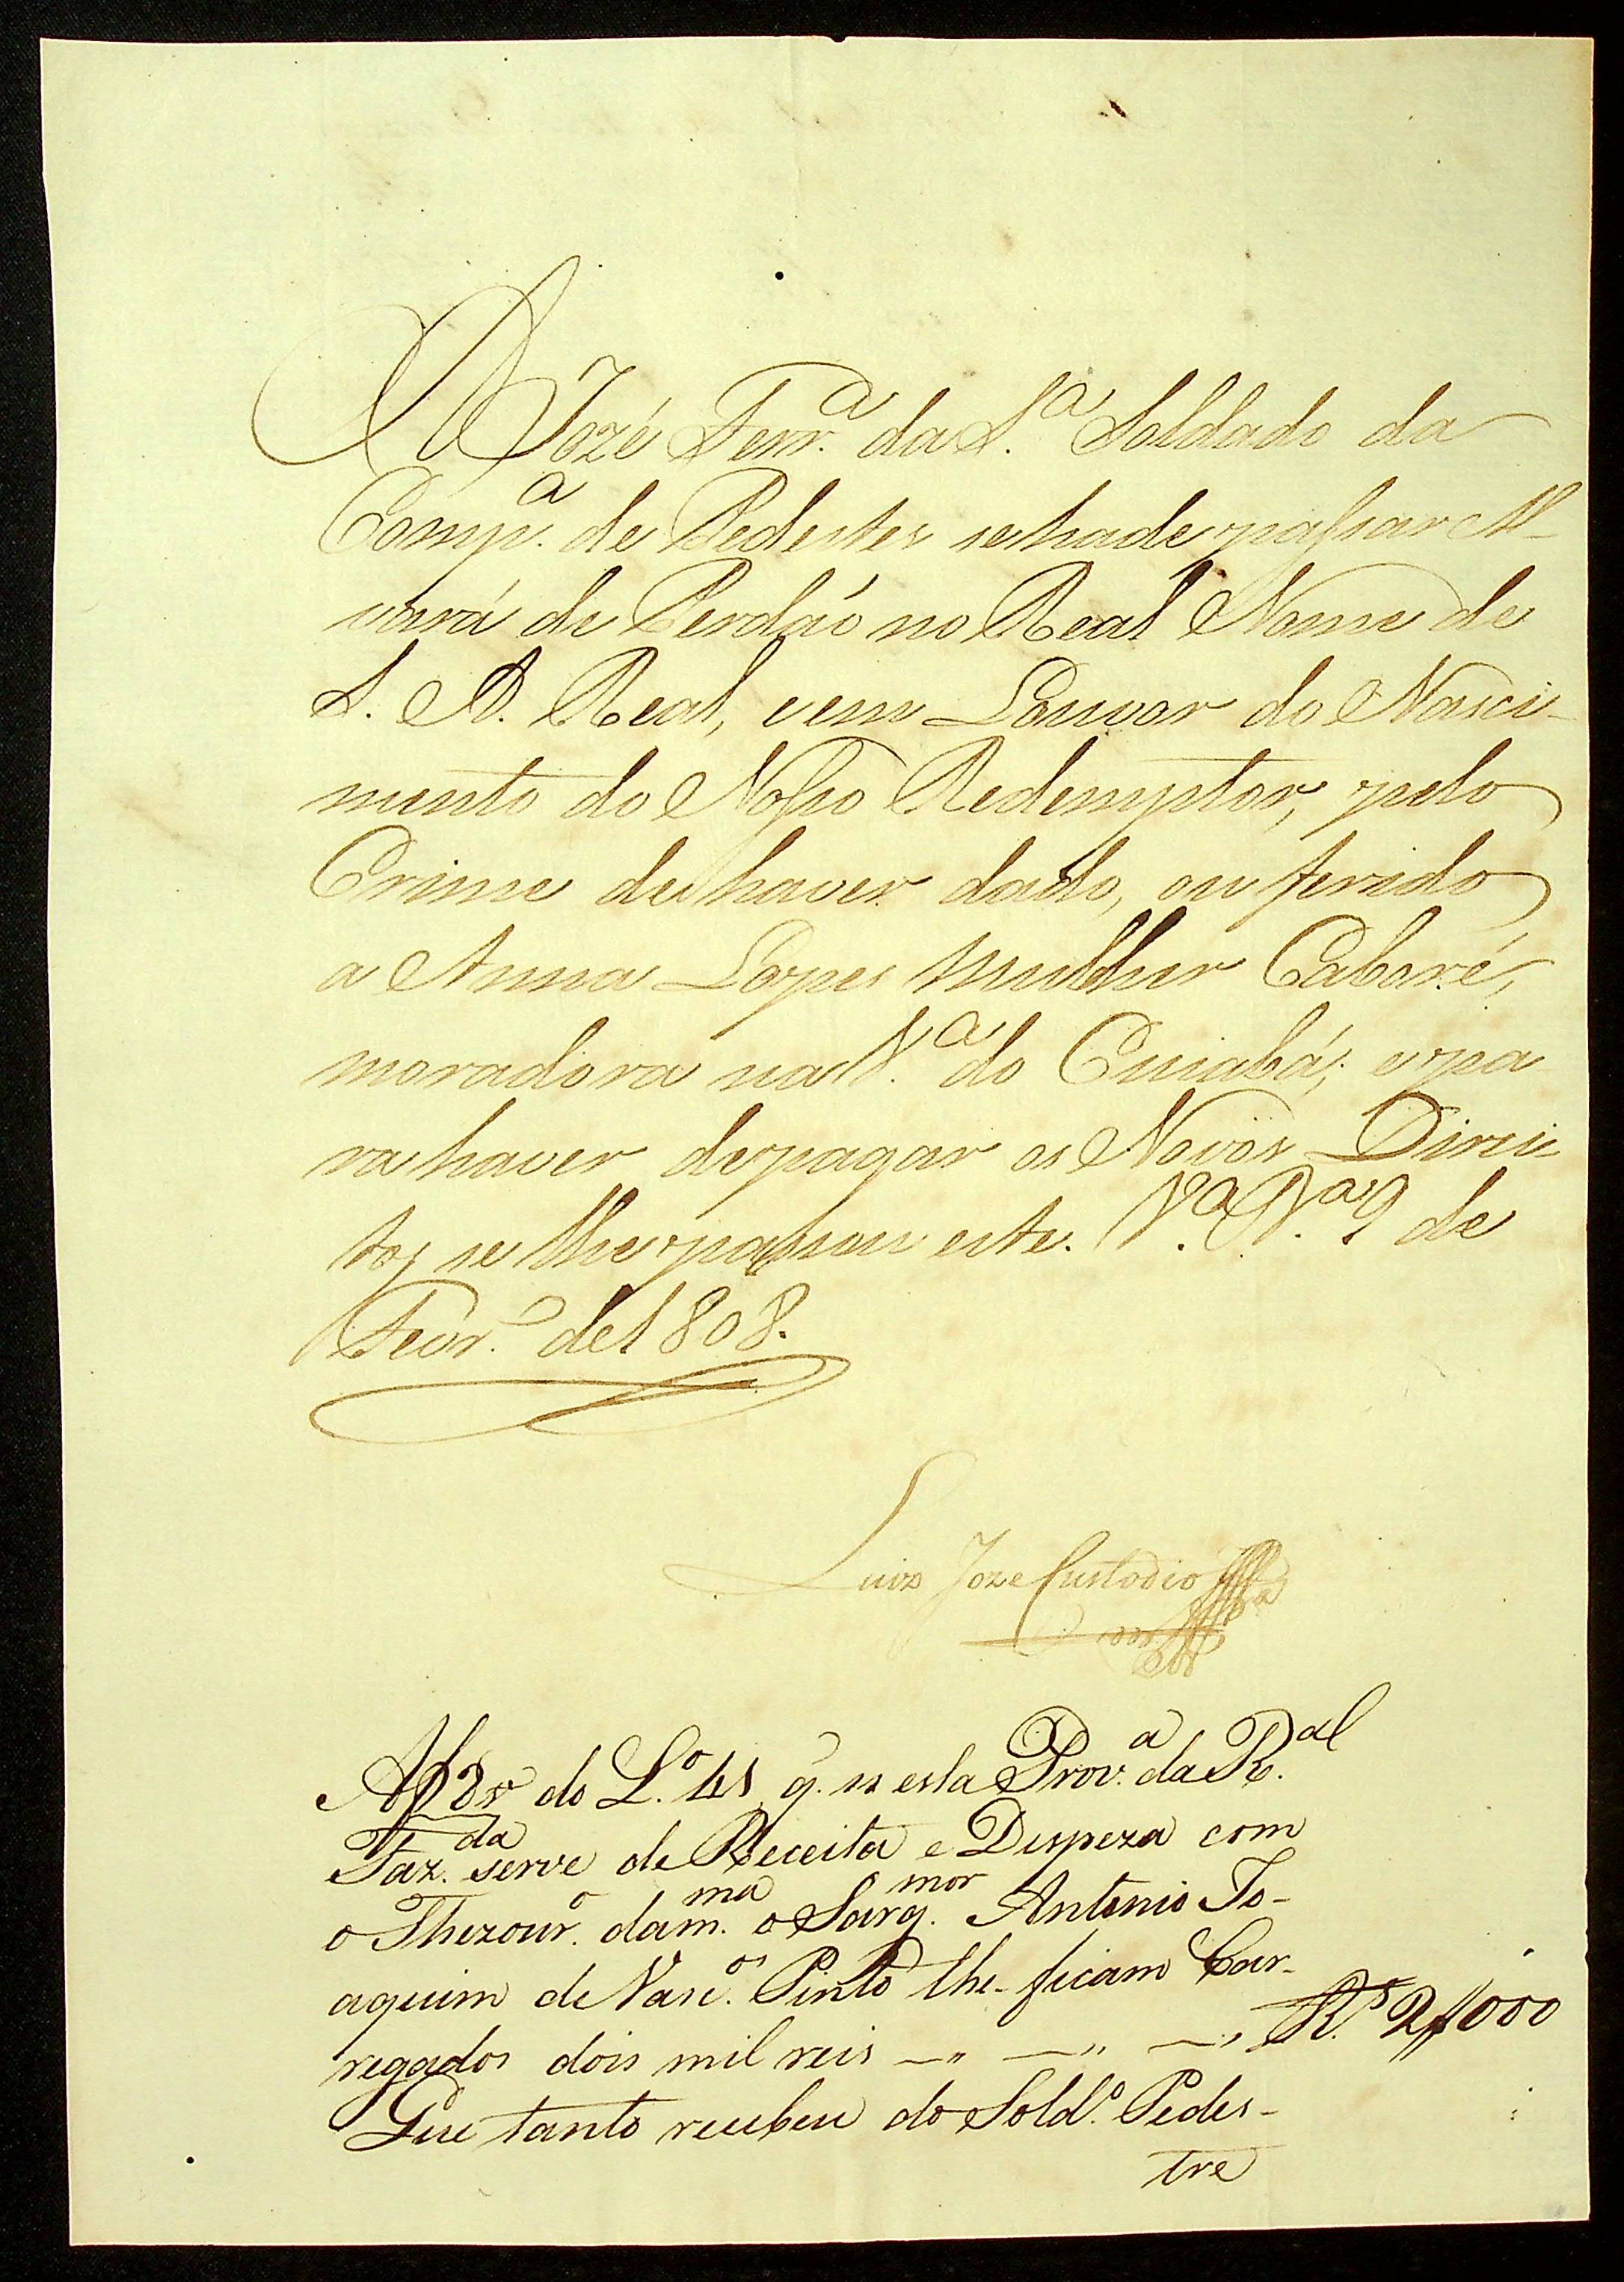 A Jozé Ferr.ª da S.ª Soldado da
Comp.ª de Pedestes se hade passar Al-
vará de Perdaõ no Real Nome de
S. A. Real, e em Louvor do Nasci-
mento do Nosso Redemptor, pelo
Crime de haver dado, ou ferido
a Anna Lopes mulher Caboré,
moradora na V.ª do Cuiabá; e pa
ra haver de pagar os Novos Direi
tos se lhe passou este. V.ª B.ª 9 de
Fevr.º de 1808.
Luiz Joze Custodio
Af do L.º 41 q. n esta Prov.ª da R.al
Faz.da serve de Receita e Despeza com
o Thezour.º da m.ma o Sarg.mor Antonio Jo-
aquim de Vasc.os Pinto lhe ficam Car-
regados dois mil reis —" —" —" R.s 2$000
Que tanto recebeu do Sold.º Pedes-
tre